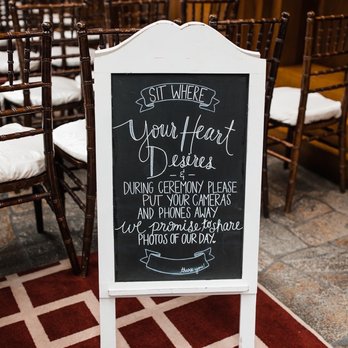 SIT WHERE
Your Heart
Desires
&
DURING CEREMONY PLEASE
PUT YOUR CAMERAS
AND PHONES AWAY
we promise to share
PHOTOS OF OUR DAY.
thank you!